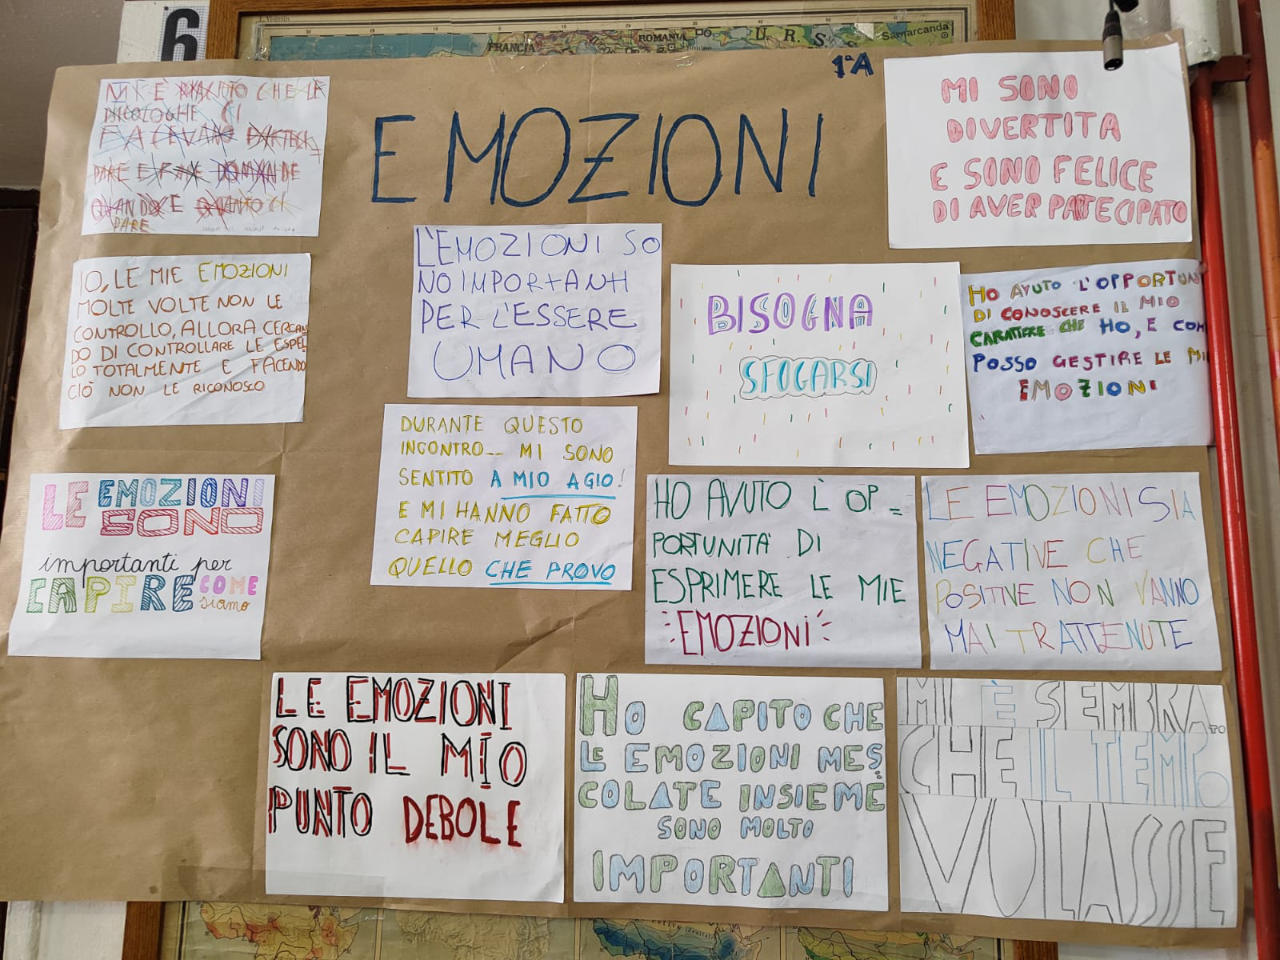 6
FRANCIA
ROMANIA
U R S S
Samarcanda
1ªA
EMOZIONI
MI È PIACIUTO CHE LE
PSICOLOGHE CI
FACEVANO PARTECI
PARE E FARE DOMANDE
QUANDO E QUANTO CI
PARE
MI SONO
DIVERTITA
E SONO FELICE
DI AVER PARTECIPATO
L'EMOZIONI SO
NO IMPORTANTI
PER L'ESSERE
UMANO
IO, LE MIE EMOZIONI
MOLTE VOLTE NON LE
CONTROLLO, ALLORA CERCAN
DO DI CONTROLLARE LE ESPEL
LO TOTALMENTE E FACENDO
CIÒ NON LE RICONOSCO
BISOGNA
SFOGARSI
HO AVUTO L'OPPORTUN
DI CONOSCERE IL MIO
CARATTERE CHE HO, E COM
POSSO GESTIRE LE MI
EMOZIONI
DURANTE QUESTO
INCONTRO... MI SONO
SENTITO A MIO AGIO!
E MI HANNO FATTO
CAPIRE MEGLIO
QUELLO CHE PROVO
LE EMOZIONI
SONO
importanti per
CAPIRE COME
siamo
HO AVUTO L' OP=
PORTUNITÀ DI
ESPRIMERE LE MIE
EMOZIONI
LE EMOZIONI SIA
NEGATIVE CHE
POSITIVE NON VANNO
MAI TRATTENUTE
LE EMOZIONI
SONO IL MIO
PUNTO DEBOLE
HO CAPITO CHE
LE EMOZIONI MES
COLATE INSIEME
SONO MOLTO
IMPORTANTI
MI È SEMBRATO
CHE IL TEMPO
VOLASSE